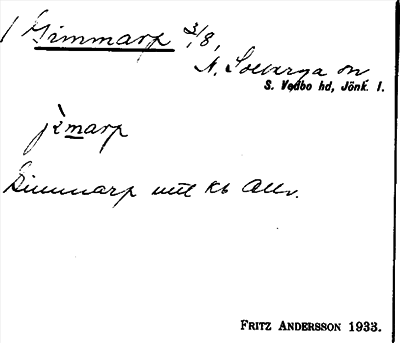 1 Gimmarp 3/8,
N. Solberga sn
S. Vedbo hd, Jönk. l.
jìmarp
Gimmarp utt Kb Allv.
FRITZ ANDERSSON 1933.